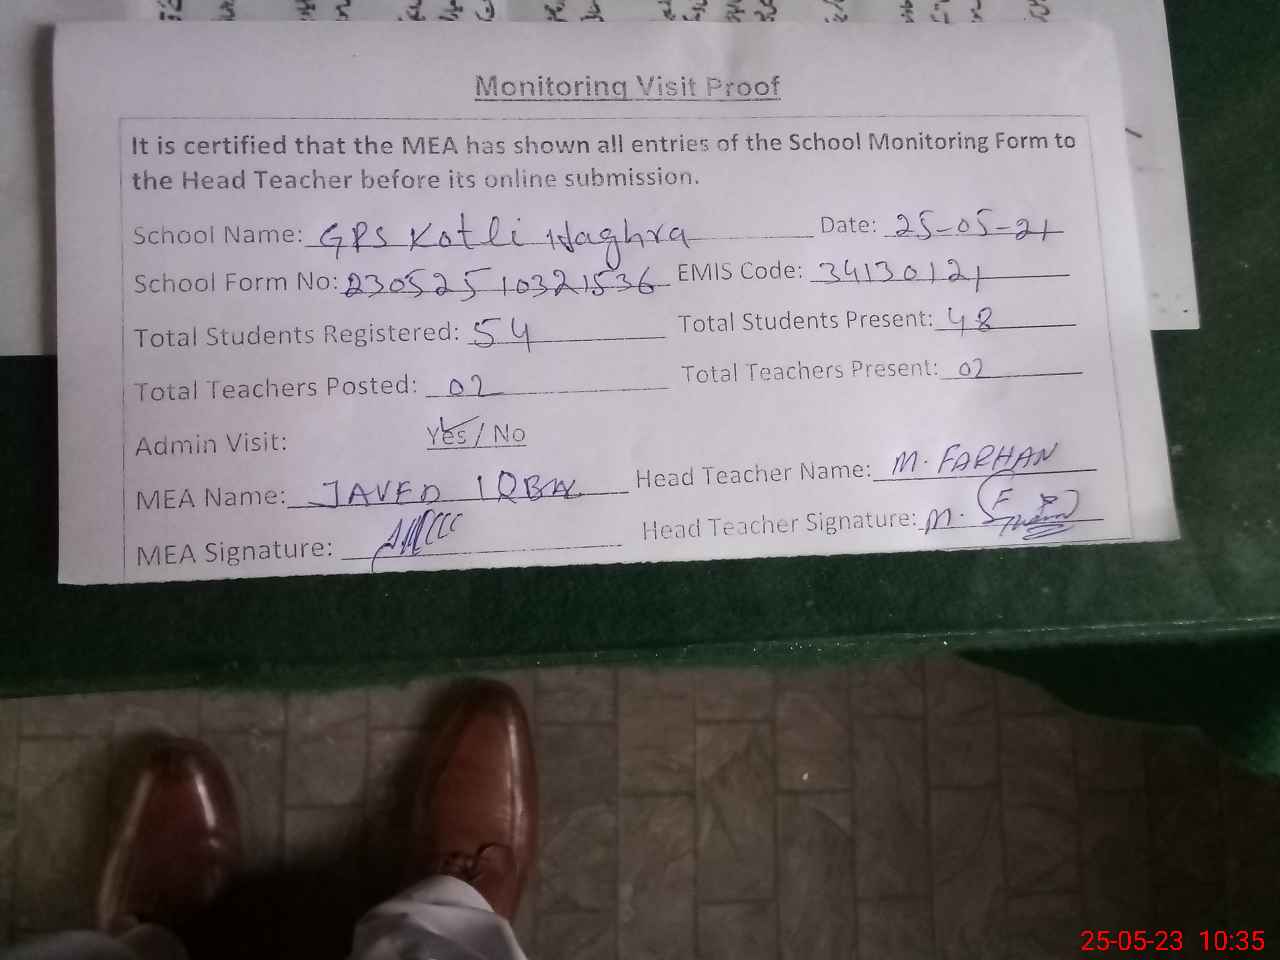 Monitoring Visit Proof
It is certified that the MEA has shown all entries of the School Monitoring Form to
the Head Teacher before its online submission.
School Name: GPS Kotli Haghra Date: 25-05-21
School Form No: 23052510321536 EMIS Code: 34130121
Total Students Registered: 54 Total Students Present: 48
Total Teachers Posted: 02 Total Teachers Present: 02
Admin Visit: Yes / No
MEA Name: JAVED IQBAL Head Teacher Name: M. FARHAN
MEA Signature: Head Teacher Signature: M.
25-05-23 10:35